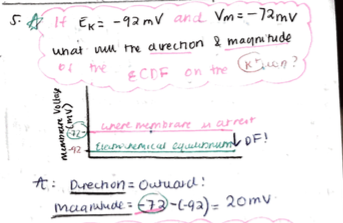 5. If EK = -92mV and Vm = -72mV
what will the direction & magnitude
of the ECDF on the K+ ion?
membrane Voltage
(mV)
-72
where membrane is at rest
-92
Electrochemical equilibrium
DF!
A: Direction = Outward!
Magnitude = -72 - (-92) = 20mV